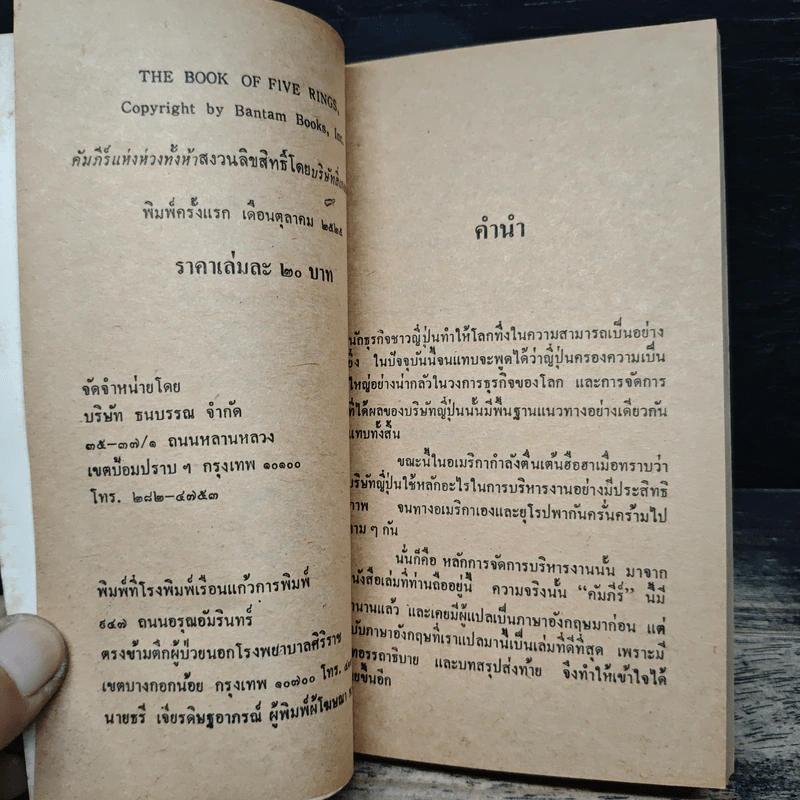 THE BOOK OF FIVE RINGS,
Copyright by Bantam Books, Inc.
คัมภีร์แห่งห่วงทั้งห้าสงวนลิขสิทธิ์โดยบริษัท
พิมพ์ครั้งแรก เดือนตุลาคม ๒๕๒๕
ราคาเล่มละ ๒๐ บาท
จัดจำหน่ายโดย
บริษัท ธนบรรณ จำกัด
๓๕-๓๗/๑ ถนนหลานหลวง
เขตป้อมปราบ ฯ กรุงเทพ ๑๐๑๐๐
โทร. ๒๘๒-๔๗๕๓
พิมพ์ที่โรงพิมพ์เรือนแก้วการพิมพ์
๙๔๗ ถนนอรุณอัมรินทร์
ตรงข้ามตึกผู้ป่วยนอกโรงพยาบาลศิริราช
เขตบางกอกน้อย กรุงเทพ ๑๐๗๐๐ โทร.
นายธรี เจียรดิษฐอาภรณ์ ผู้พิมพ์ผู้โฆษณา
คำนำ
นักธุรกิจชาวญี่ปุ่นทำให้โลกทึ่งในความสามารถเป็นอย่าง
ยิ่ง ในปัจจุบันนี้จนแทบจะพูดได้ว่าญี่ปุ่นครองความเป็น
ใหญ่อย่างน่ากลัวในวงการธุรกิจของโลก และการจัดการ
ที่ได้ผลของบริษัทญี่ปุ่นนั้นมีพื้นฐานแนวทางอย่างเดียวกัน
แทบทั้งสิ้น
ขณะนี้ในอเมริกากำลังตื่นเต้นฮือฮาเมื่อทราบว่า
บริษัทญี่ปุ่นใช้หลักอะไรในการบริหารงานอย่างมีประสิทธิ
ภาพ จนทางอเมริกาเองและยุโรปพากันครั่นคร้ามไป
ตาม ๆ กัน
นั่นก็คือ หลักการจัดการบริหารงานนั้น มาจาก
หนังสือเล่มที่ท่านถืออยู่นี้ ความจริงนั้น “คัมภีร์” นี้มี
นานแล้ว และเคยมีผู้แปลเป็นภาษาอังกฤษมาก่อน แต่
ฉบับภาษาอังกฤษที่เราแปลมานี้เป็นเล่มที่ดีที่สุด เพราะมี
บทอรรถาธิบาย และบทสรุปส่งท้าย จึงทำให้เข้าใจได้
ง่ายขึ้นอีก